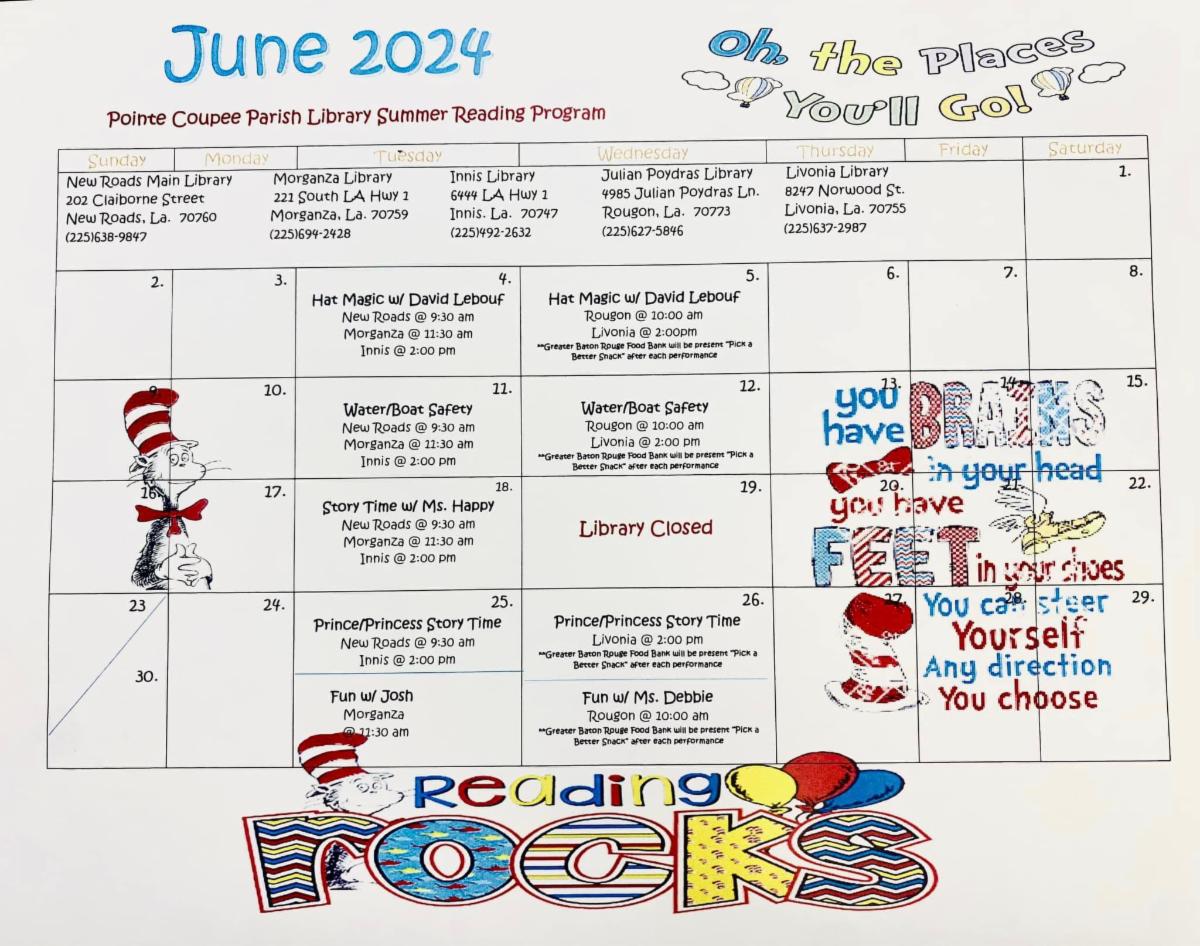 June 2024
Oh, the Places
You'll Go!
Pointe Coupee Parish Library Summer Reading Program
Sunday Monday Tuesday Wednesday Thursday Friday Saturday
New Roads Main Library
202 Claiborne Street
New Roads, La. 70760
(225)638-9847
Morganza Library
221 South LA Hwy 1
Morganza, La. 70759
(225)694-2428
Innis Library
6444 LA Hwy 1
Innis. La. 70747
(225)492-2632
Julian Poydras Library
4985 Julian Poydras Ln.
Rougon, La. 70773
(225)627-5846
Livonia Library
8247 Norwood St.
Livonia, La. 70755
(225)637-2987
1.
2.
3.
4.
Hat Magic w/ David Lebouf
New Roads @ 9:30 am
Morganza @ 11:30 am
Innis @ 2:00 pm
5.
Hat Magic w/ David Lebouf
Rougon @ 10:00 am
Livonia @ 2:00pm
**Greater Baton Rouge Food Bank will be present "Pick a
Better Snack" after each performance
6.
7.
8.
9.
10.
11.
Water/Boat Safety
New Roads @ 9:30 am
Morganza @ 11:30 am
Innis @ 2:00 pm
12.
Water/Boat Safety
Rougon @ 10:00 am
Livonia @ 2:00 pm
**Greater Baton Rouge Food Bank will be present "Pick a
Better Snack" after each performance
13.
14.
15.
you
have BRAINS
in your head
16.
17.
18.
Story Time w/ Ms. Happy
New Roads @ 9:30 am
Morganza @ 11:30 am
Innis @ 2:00 pm
19.
Library Closed
20.
21.
22.
you have
FEET in your shoes
23
30.
24.
25.
Prince/Princess Story Time
New Roads @ 9:30 am
Innis @ 2:00 pm
Fun w/ Josh
Morganza
@ 11:30 am
26.
Prince/Princess Story Time
Livonia @ 2:00 pm
**Greater Baton Rouge Food Bank will be present "Pick a
Better Snack" after each performance
Fun w/ Ms. Debbie
Rougon @ 10:00 am
**Greater Baton Rouge Food Bank will be present "Pick a
Better Snack" after each performance
27.
28.
29.
You can steer
Yourself
Any direction
You choose
Reading
rocks